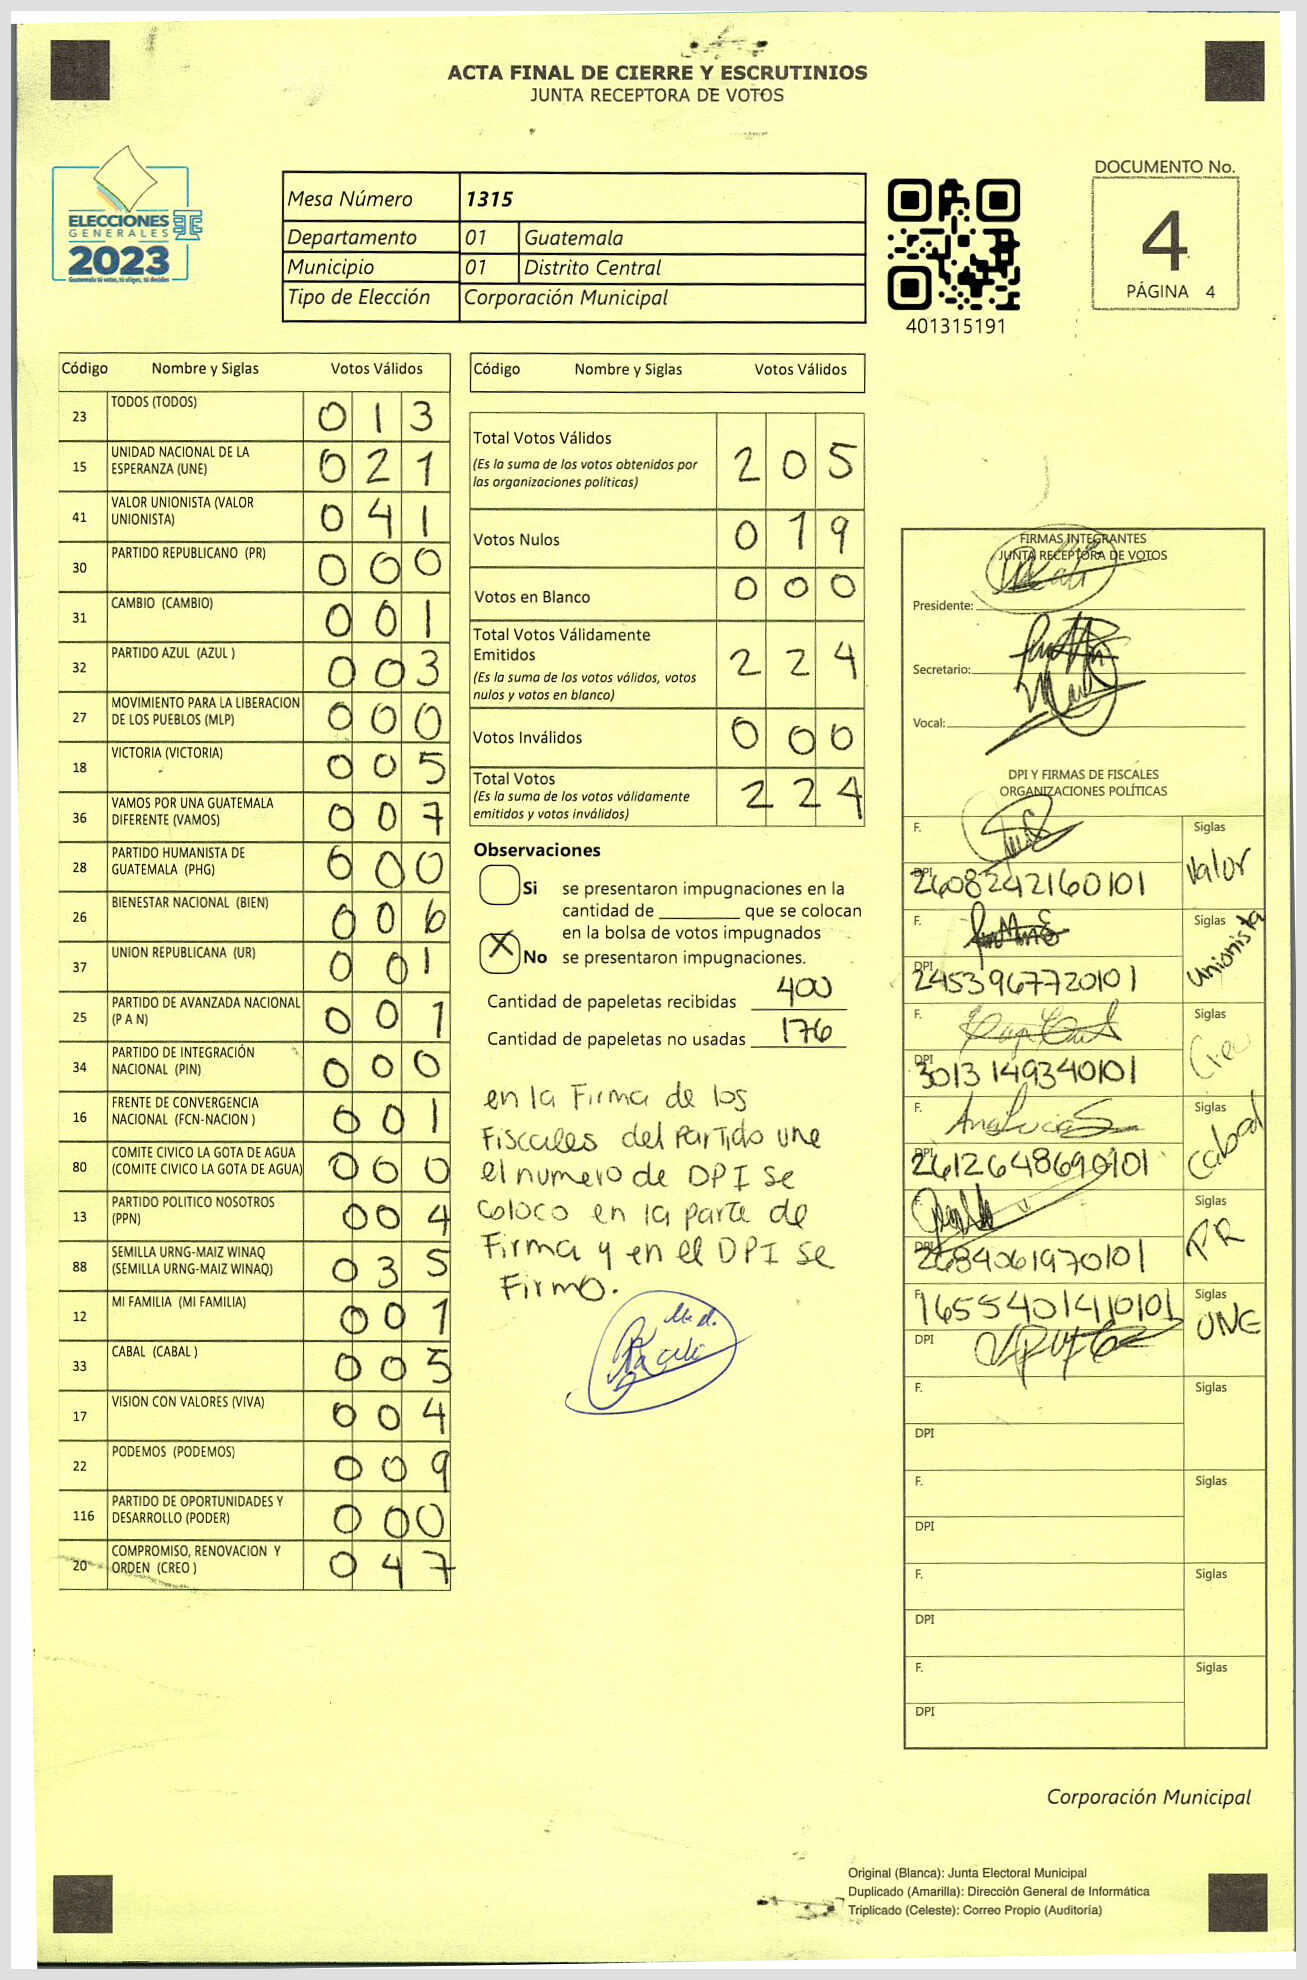 ACTA FINAL DE CIERRE Y ESCRUTINIOS
JUNTA RECEPTORA DE VOTOS
ELECCIONES
GENERALES
2023
Guatemala tú votas, tú eliges, tú decides
Mesa Número 1315
Departamento 01 Guatemala
Municipio 01 Distrito Central
Tipo de Elección Corporación Municipal
401315191
DOCUMENTO No.
4
PÁGINA 4
Código Nombre y Siglas Votos Válidos
23 TODOS (TODOS) 0 1 3
15 UNIDAD NACIONAL DE LA
ESPERANZA (UNE) 0 2 1
41 VALOR UNIONISTA (VALOR
UNIONISTA) 0 4 1
30 PARTIDO REPUBLICANO (PR) 0 0 0
31 CAMBIO (CAMBIO) 0 0 1
32 PARTIDO AZUL (AZUL ) 0 0 3
27 MOVIMIENTO PARA LA LIBERACION
DE LOS PUEBLOS (MLP) 0 0 0
18 VICTORIA (VICTORIA) 0 0 5
36 VAMOS POR UNA GUATEMALA
DIFERENTE (VAMOS) 0 0 7
28 PARTIDO HUMANISTA DE
GUATEMALA (PHG) 0 0 0
26 BIENESTAR NACIONAL (BIEN) 0 0 6
37 UNION REPUBLICANA (UR) 0 0 1
25 PARTIDO DE AVANZADA NACIONAL
(P A N) 0 0 1
34 PARTIDO DE INTEGRACIÓN
NACIONAL (PIN) 0 0 0
16 FRENTE DE CONVERGENCIA
NACIONAL (FCN-NACION ) 0 0 1
80 COMITE CIVICO LA GOTA DE AGUA
(COMITE CIVICO LA GOTA DE AGUA) 0 0 0
13 PARTIDO POLITICO NOSOTROS
(PPN) 0 0 4
88 SEMILLA URNG-MAIZ WINAQ
(SEMILLA URNG-MAIZ WINAQ) 0 3 5
12 MI FAMILIA (MI FAMILIA) 0 0 1
33 CABAL (CABAL ) 0 0 5
17 VISION CON VALORES (VIVA) 0 0 4
22 PODEMOS (PODEMOS) 0 0 9
116 PARTIDO DE OPORTUNIDADES Y
DESARROLLO (PODER) 0 0 0
20 COMPROMISO, RENOVACION Y
ORDEN (CREO ) 0 4 7
Código Nombre y Siglas Votos Válidos
Total Votos Válidos 2 0 5
(Es la suma de los votos obtenidos por
las organizaciones políticas)
Votos Nulos 0 1 9
Votos en Blanco 0 0 0
Total Votos Válidamente
Emitidos 2 2 4
(Es la suma de los votos válidos, votos
nulos y votos en blanco)
Votos Inválidos 0 0 0
Total Votos 2 2 4
(Es la suma de los votos válidamente
emitidos y votos inválidos)
Observaciones
Si se presentaron impugnaciones en la
cantidad de ________ que se colocan
en la bolsa de votos impugnados
X No se presentaron impugnaciones.
Cantidad de papeletas recibidas 400
Cantidad de papeletas no usadas 176
en la Firma de los
Fiscales del Partido une
el numero de DPI se
coloco en la parte de
Firma y en el DPI se
Firmo.
FIRMAS INTEGRANTES
JUNTA RECEPTORA DE VOTOS
Presidente:
Secretario:
Vocal:
DPI Y FIRMAS DE FISCALES
ORGANIZACIONES POLÍTICAS
F. Siglas
DPI 2608242160101 Valor
F. Siglas
DPI 2453967720101 Unionista
F. Siglas
DPI 3013149340101 Creo
F. Ana Lucia S Siglas
DPI 2612648690101 Cabal
F. Siglas
DPI 2684061970101 PR
F. 1655401410101 Siglas
DPI UNE
F. Siglas
DPI
F. Siglas
DPI
F. Siglas
DPI
F. Siglas
DPI
Corporación Municipal
Original (Blanca): Junta Electoral Municipal
Duplicado (Amarilla): Dirección General de Informática
Triplicado (Celeste): Correo Propio (Auditoría)